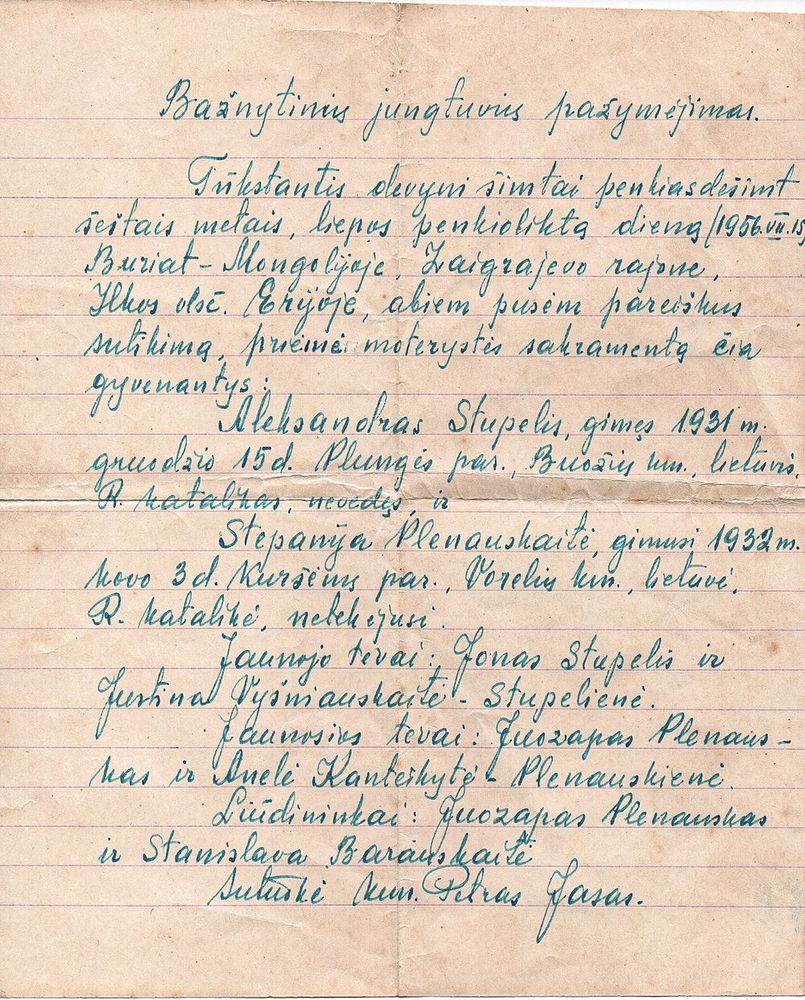 Bažnytinių jungtuvių pažymėjimas.
Tūkstantis devyni šimtai penkiasdešimt
šeštais metais, liepos penkioliktą dieną /1956.VII.15
Buriat-Mongolijoje, Zaigrajevo rajone,
Ilkos vlsč. Erijoje, abiem pusėm pareiškus
sutikimą, priėmė moterystės sakramentą čia
gyvenantys:
Aleksandras Stupelis, gimęs 1931 m.
gruodžio 15 d. Plungės par., Buožių km., lietuvis,
R. katalikas, nevedęs, ir
Stepanija Plenauskaitė, gimusi 1932 m.
kovo 3 d. Kuršėnų par., Vorelių km., lietuvė,
R. katalikė, netekėjusi.
Jaunojo tėvai: Jonas Stupelis ir
Justina Vyšniauskaitė - Stupelienė.
Jaunosios tėvai: Juozapas Plenaus-
kas ir Anelė Kanteikytė - Plenauskienė.
Liūdininkai: Juozapas Plenauskas
ir Stanislava Barauskaitė
Sutuokė kun. Petras Jasas.